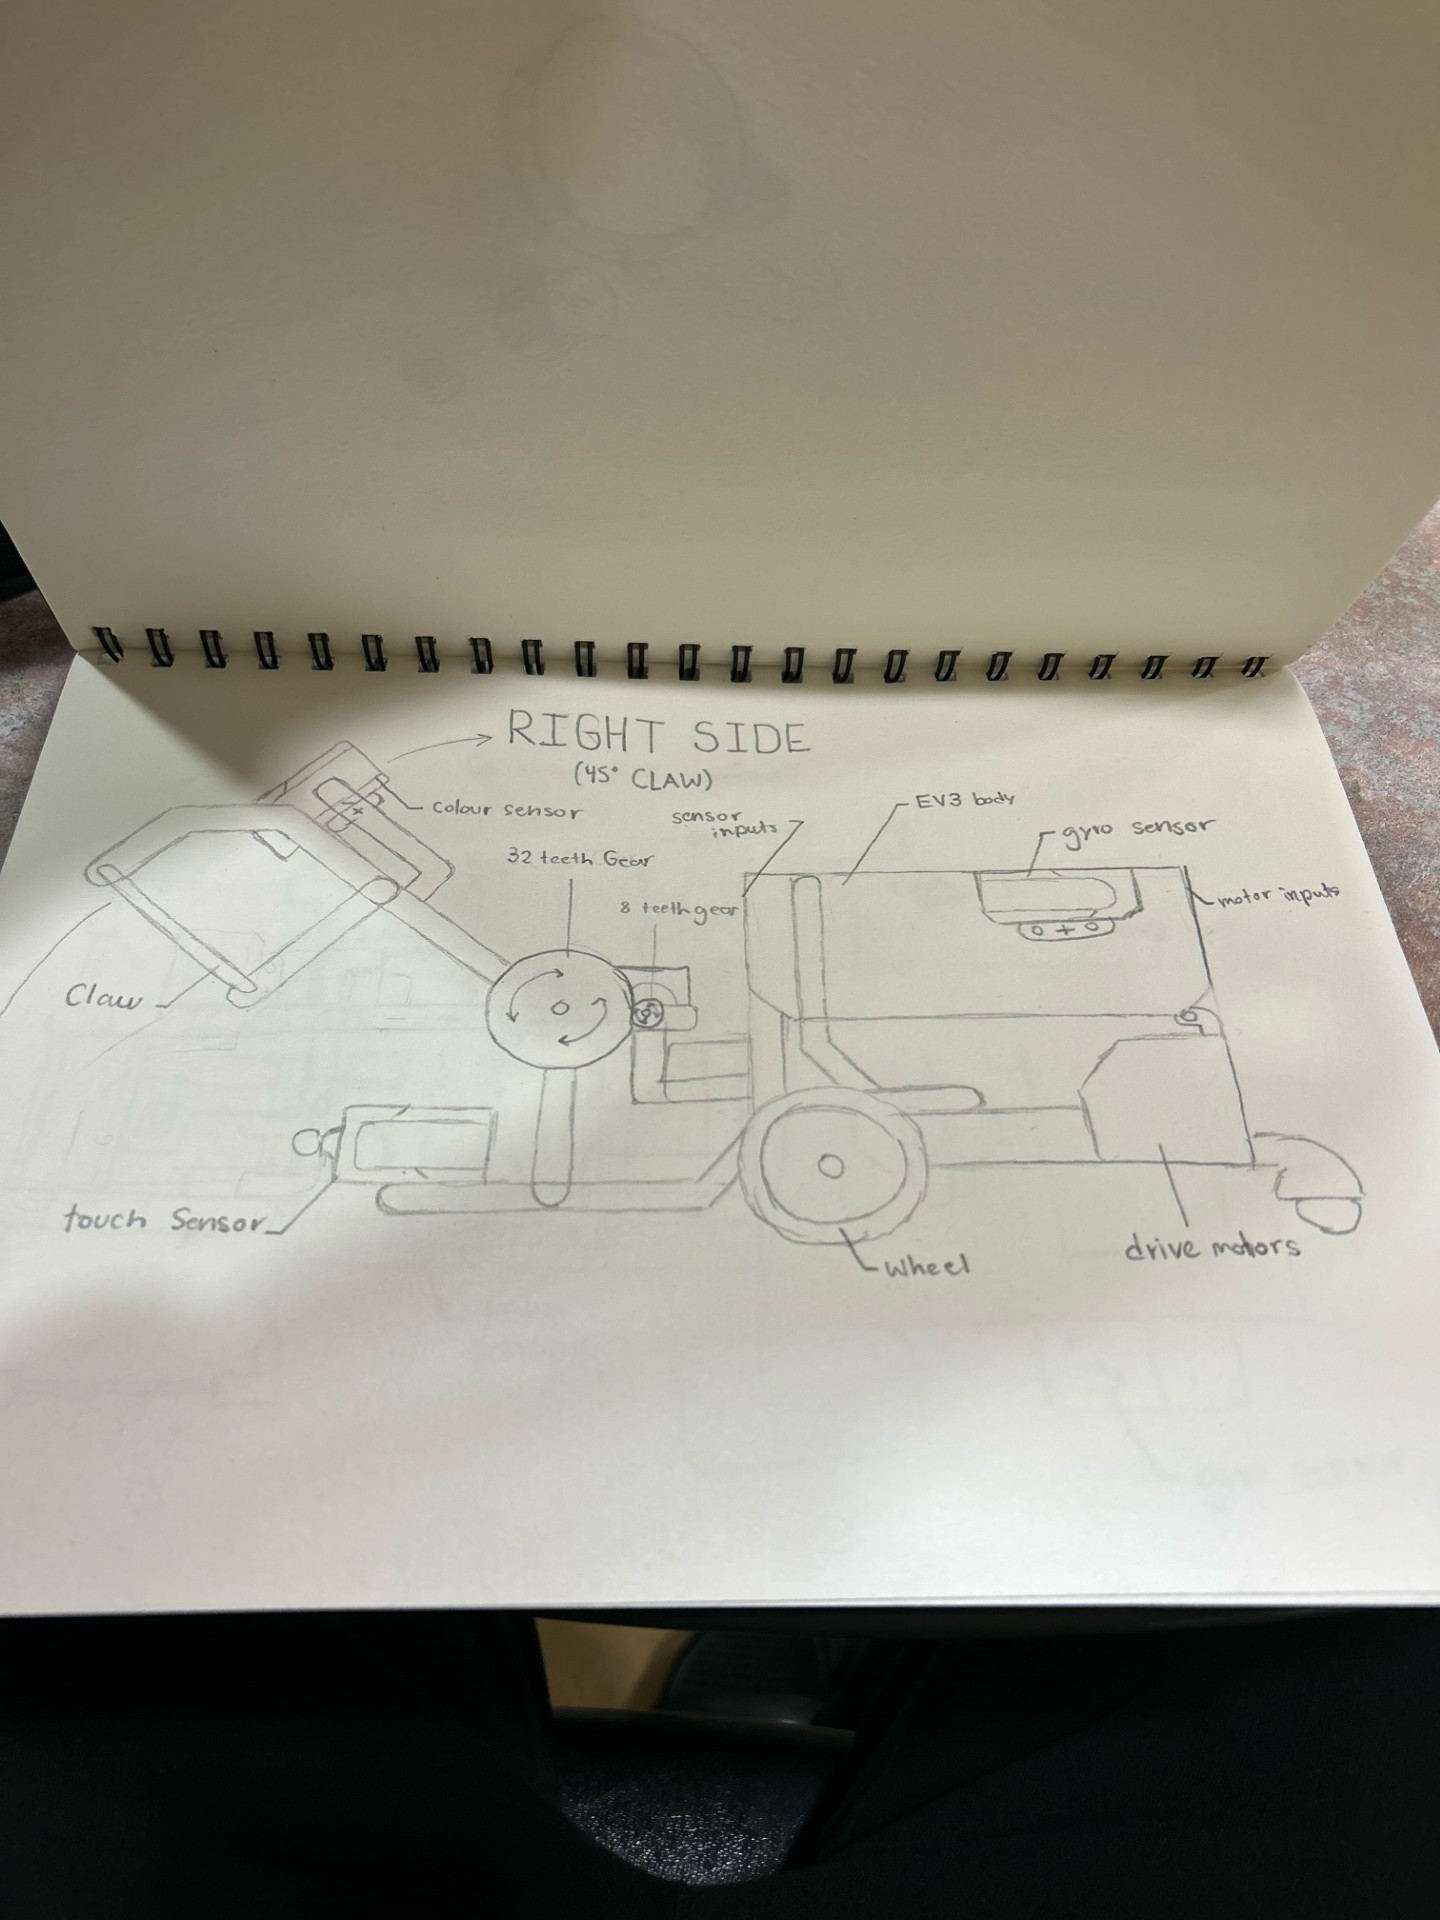 RIGHT SIDE
(45° CLAW)
colour sensor
sensor
inputs
EV3 body
gyro sensor
32 teeth Gear
8 teeth gear
motor inputs
Claw
touch Sensor
wheel
drive motors